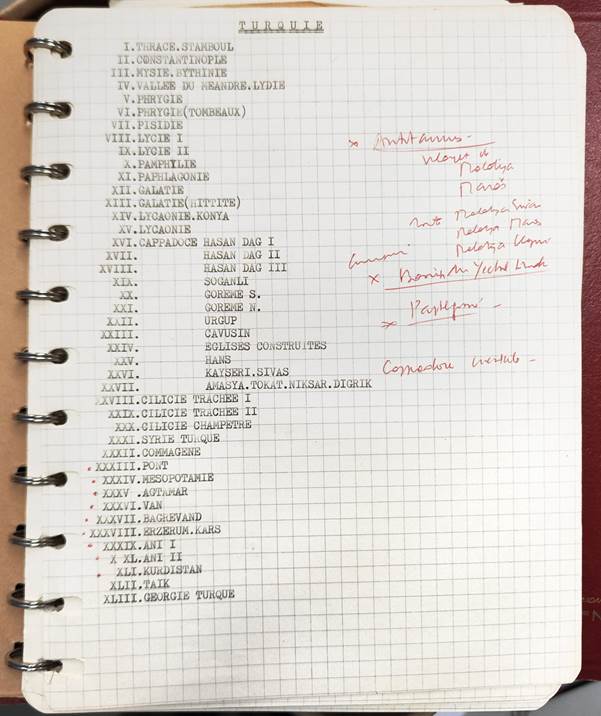 TURQUIE
I.THRACE.STAMBOUL
II.CONSTANTINOPLE
III.MYSIE.BYTHINIE
IV.VALLEE DU MEANDRE.LYDIE
V.PHRYGIE
VI.PHRYGIE(TOMBEAUX)
VII.PISIDIE
VIII.LYCIE I
IX.LYCIE II
X.PAMPHYLIE
XI.PAPHLAGONIE
XII.GALATIE
XIII.GALATIE(HITTITE)
XIV.LYCAONIE.KONYA
XV.LYCAONIE
XVI.CAPPADOCE HASAN DAG I
XVII. HASAN DAG II
XVIII. HASAN DAG III
XIX. SOGANLI
XX. GOREME S.
XXI. GOREME N.
XXII. URGUP
XXIII. CAVUSIN
XXIV. EGLISES CONSTRUITES
XXV. HANS
XXVI. KAYSERI.SIVAS
XXVII. AMASYA.TOKAT.NIKSAR.DIGRIK
XXVIII.CILICIE TRACHEE I
XXIX.CILICIE TRACHEE II
XXX.CILICIE CHAMPETRE
XXXI.SYRIE TURQUE
XXXII.COMMAGENE
XXXIII.PONT
XXXIV.MESOPOTAMIE
XXXV .AGTAMAR
XXXVI.VAN
XXXVII.BAGREVAND
XXXVIII.ERZERUM.KARS
XXXIX.ANI I
X XL.ANI II
XLI.KURDISTAN
XLII.TAIK
XLIII.GEORGIE TURQUE
x Antitaurus -
Malatya
Maras
Malatya
Malatya Maras
Malatya
x
x
Cappadoce